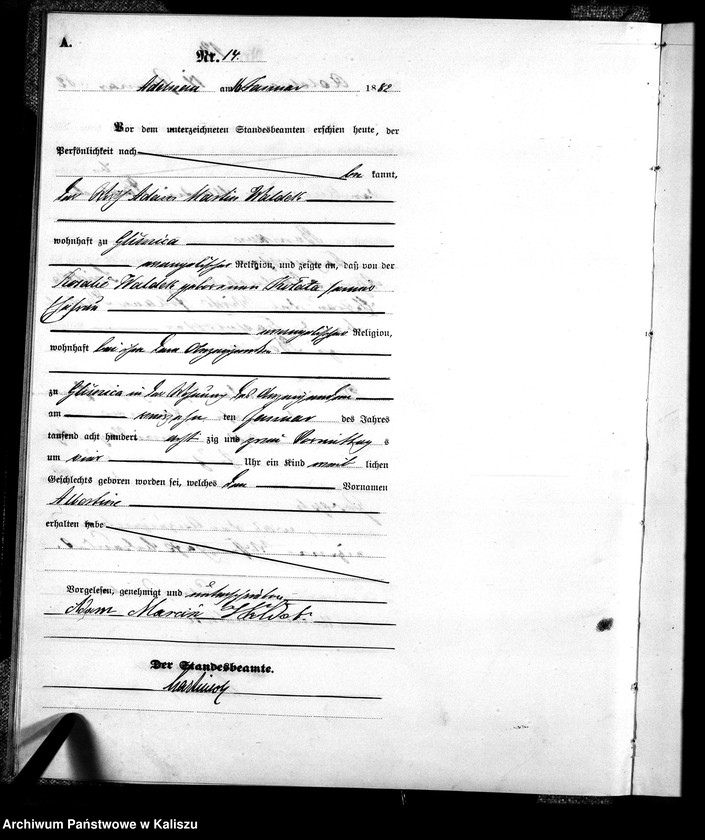 A.
Nr. 14.
Adelnau am 16 Januar 1882
Vor dem unterzeichneten Standesbeamten erschien heute, der
Persönlichkeit nach
be kannt,
der Adam Martin Waldek
wohnhaft zu Glisnica
evangelischer Religion, und zeigte an, daß von der
Rosalie Waldek geborenen seiner
Ehefrau
evangelischer Religion,
wohnhaft bei ihm dem Anzeigenden
zu Glisnica in der Wohnung des Anzeigenden
am den Januar des Jahres
tausend acht hundert acht zig und zwei Vormittag s
um vier Uhr ein Kind weib lichen
Geschlechts geboren worden sei, welches den Vornamen
Albertine
erhalten habe
Vorgelesen, genehmigt und unterschrieben
Adam Marcin
Der Standesbeamte.
Archiwum Państwowe w Kaliszu